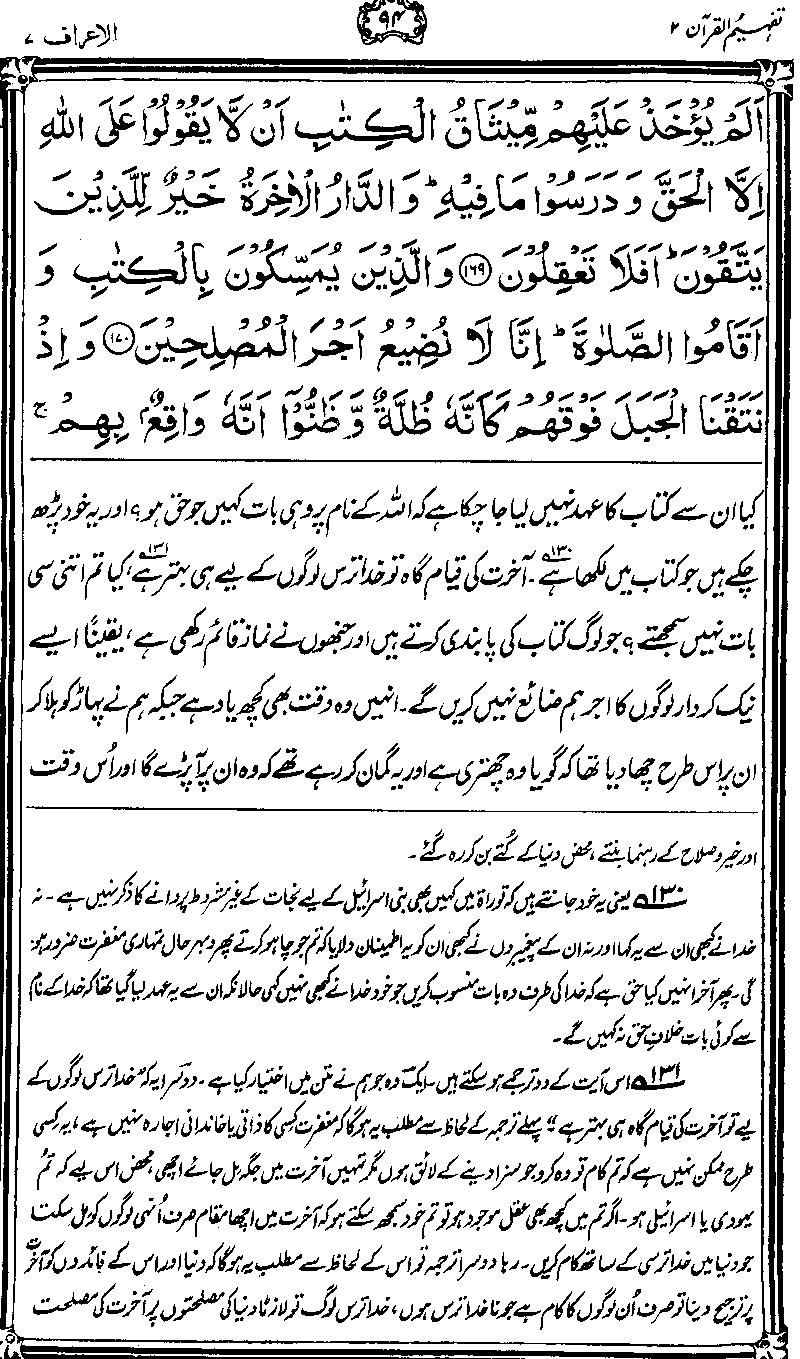 تفہیم القرآن ۲
۹۴
الاعراف ۷
اَلَمْ يُؤْخَذْ عَلَيْهِمْ مِّيْثَاقُ الْكِتٰبِ اَنْ لَّا يَقُوْلُوْا عَلَى اللّٰهِ
اِلَّا الْحَقَّ وَ دَرَسُوْا مَا فِيْهِ ؕ وَ الدَّارُ الْاٰخِرَةُ خَيْرٌ لِّلَّذِيْنَ
يَتَّقُوْنَ ؕ اَفَلَا تَعْقِلُوْنَ ۝۱۶۹ وَالَّذِيْنَ يُمَسِّكُوْنَ بِالْكِتٰبِ وَ
اَقَامُوا الصَّلٰوةَ ؕ اِنَّا لَا نُضِيْعُ اَجْرَ الْمُصْلِحِيْنَ ۝۱۷۰ وَ اِذْ
نَتَقْنَا الْجَبَلَ فَوْقَهُمْ كَاَنَّهٗ ظُلَّةٌ وَّ ظَنُّوْۤا اَنَّهٗ وَاقِعٌۢ بِهِمْ ۚ
کیا ان سے کتاب کا عہد نہیں لیا جا چکا ہے کہ اللہ کے نام پر وہی بات کہیں جو حق ہو؟ اور یہ خود پڑھ
چکے ہیں جو کتاب میں لکھا ہے۱۳۰۔ آخرت کی قیام گاہ تو خدا ترس لوگوں کے لیے ہی بہتر ہے۱۳۱، کیا تم اتنی سی
بات نہیں سمجھتے؟ جو لوگ کتاب کی پابندی کرتے ہیں اور جنھوں نے نماز قائم رکھی ہے، یقیناً ایسے
نیک کردار لوگوں کا اجر ہم ضائع نہیں کریں گے۔ انہیں وہ وقت بھی کچھ یاد ہے جبکہ ہم نے پہاڑ کو ہلا کر
ان پر اس طرح چھا دیا تھا کہ گویا وہ چھتری ہے اور یہ گمان کر رہے تھے کہ وہ ان پر آ پڑے گا اور اُس وقت
اور خیر و صلاح کے رہنما بنتے، محض دنیا کے کُتّے بن کر رہ گئے۔
۱۳۰ یعنی یہ خود جانتے ہیں کہ توراۃ میں کہیں بھی بنی اسرائیل کے لیے نجات کے غیر مشروط پروانے کا ذکر نہیں ہے۔ نہ
خدا نے کبھی ان سے یہ کہا اور نہ ان کے پیغمبروں نے کبھی ان کو یہ اطمینان دلایا کہ تم جو چاہو کرتے پھرو بہرحال تمہاری مغفرت ضرور ہو
گی۔ پھر آخر انہیں کیا حق ہے کہ خدا کی طرف وہ بات منسوب کریں جو خود خدا نے کبھی نہیں کہی حالانکہ ان سے یہ عہد لیا گیا تھا کہ خدا کے نام
سے کوئی بات خلافِ حق نہ کہیں گے۔
۱۳۱ اس آیت کے دو ترجمے ہو سکتے ہیں۔ ایک وہ جو ہم نے متن میں اختیار کیا ہے۔ دوسرا یہ کہ ”خدا ترس لوگوں کے
لیے تو آخرت کی قیام گاہ ہی بہتر ہے“ پہلے ترجمہ کے لحاظ سے مطلب یہ ہو گا کہ مغفرت کسی کا ذاتی یا خاندانی اجارہ نہیں ہے، یہ کسی
طرح ممکن نہیں ہے کہ تم کام تو وہ کرو جو سزا دینے کے لائق ہوں مگر تمہیں آخرت میں جگہ مل جائے اچھی، محض اس لیے کہ تم
یہودی یا اسرائیلی ہو۔ اگر تم میں کچھ بھی عقل موجود ہو تو تم خود سمجھ سکتے ہو کہ آخرت میں اچھا مقام صرف اُنہی لوگوں کو مل سکتا
جو دنیا میں خدا ترسی کے ساتھ کام کریں۔ رہا دوسرا ترجمہ تو اس کے لحاظ سے مطلب یہ ہو گا کہ دنیا اور اس کے فائدوں کو آخرت
پر ترجیح دینا تو صرف اُن لوگوں کا کام ہے جو نا خدا ترس ہوں، خدا ترس لوگ تو لازماً دنیا کی مصلحتوں پر آخرت کی مصلحت